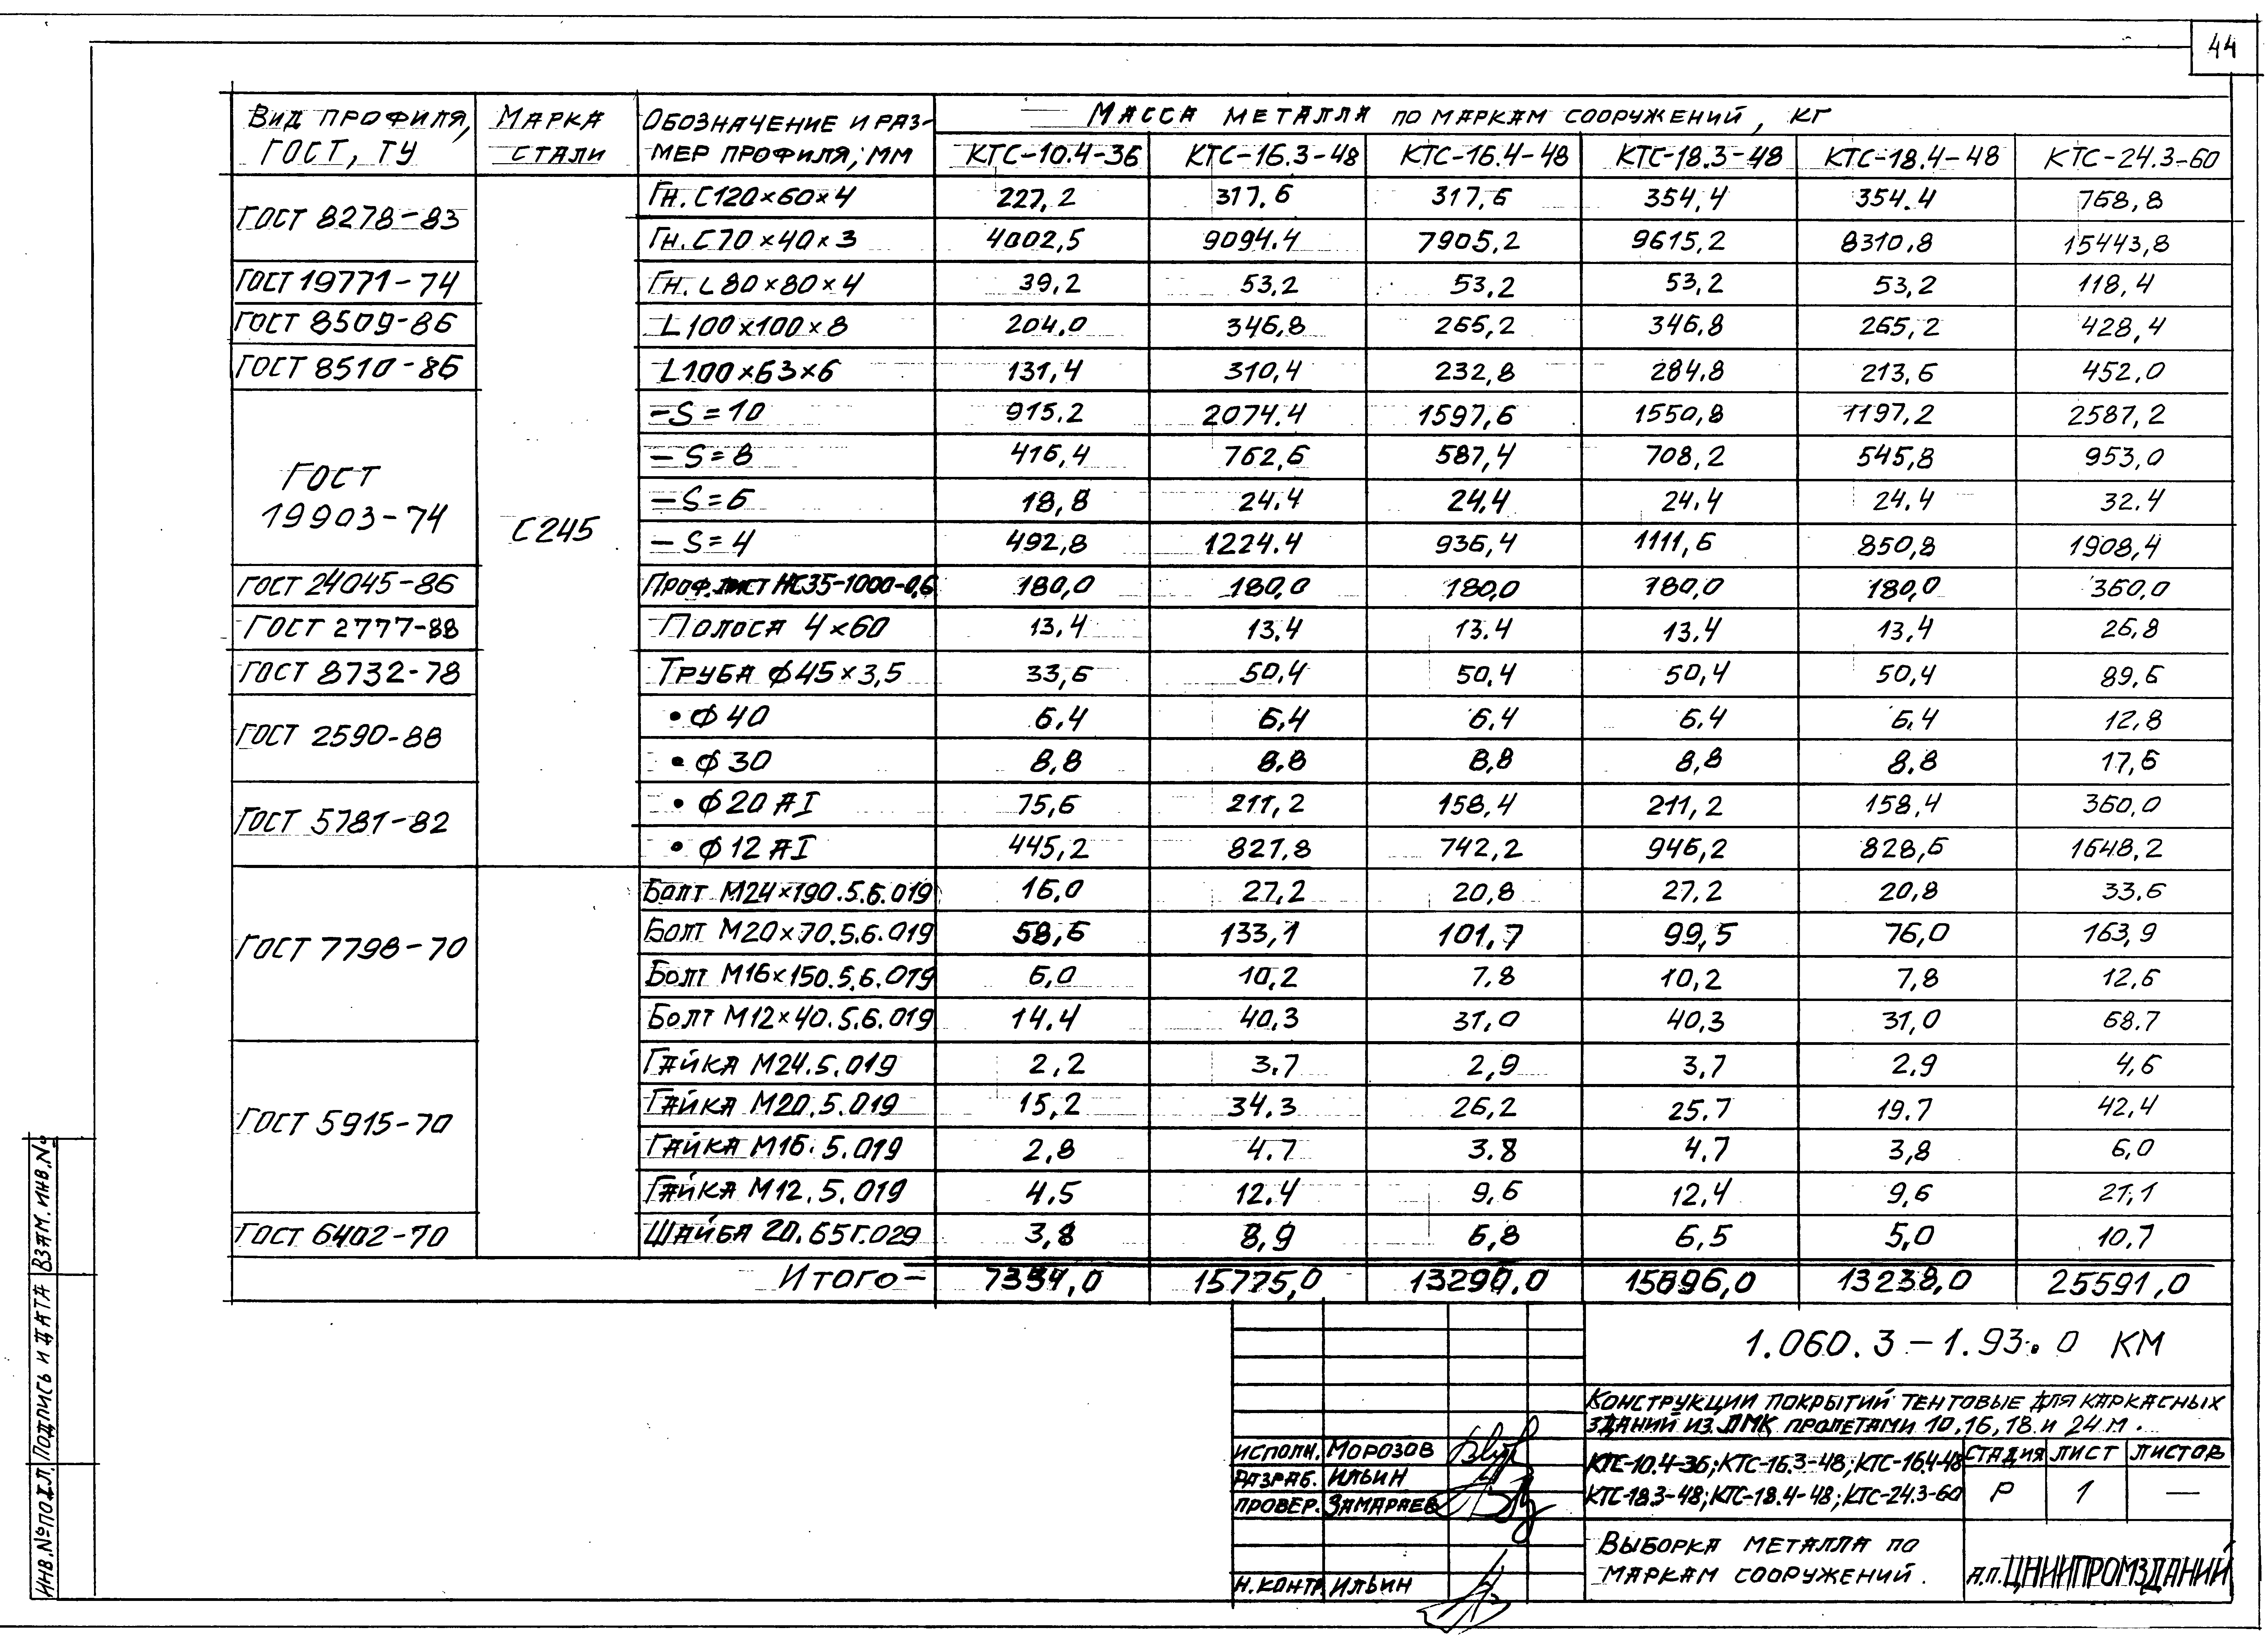 44
Вид профиля, ГОСТ, ТУ | Марка стали | Обозначение и раз-мер профиля, мм | Масса металла по маркам сооружений, кг
КТС-10.4-36 | КТС-16.3-48 | КТС-16.4-48 | КТС-18.3-48 | КТС-18.4-48 | КТС-24.3-60
ГОСТ 8278-83 | С245 | Гн. С120×60×4 | 227,2 | 317.6 | 317,6 | 354,4 | 354.4 | 768,8
Гн. С70×40×3 | 4002,5 | 9094.4 | 7905,2 | 9615,2 | 8310,8 | 15443,8
ГОСТ 19771-74 | Гн. L80×80×4 | 39,2 | 53,2 | 53,2 | 53,2 | 53,2 | 118,4
ГОСТ 8509-86 | L100×100×8 | 204,0 | 346,8 | 265,2 | 346,8 | 265,2 | 428,4
ГОСТ 8510-86 | L100×63×6 | 131,4 | 310,4 | 232,8 | 284.8 | 213,6 | 452,0
ГОСТ 19903-74 | -S=10 | 915.2 | 2074.4 | 1597,6 | 1550,8 | 1197,2 | 2587,2
-S=8 | 416,4 | 762,6 | 587,4 | 708,2 | 545,8 | 953,0
-S=6 | 18,8 | 24.4 | 24.4 | 24.4 | 24.4 | 32.4
-S=4 | 492,8 | 1224.4 | 936,4 | 1111,6 | 850,8 | 1908,4
ГОСТ 24045-86 | Проф.лист НС35-1000-0,6 | 180,0 | 180,0 | 180,0 | 180,0 | 180,0 | 360,0
ГОСТ 2777-88 | Полоса 4×60 | 13,4 | 13.4 | 13.4 | 13.4 | 13,4 | 26,8
ГОСТ 8732-78 | Труба ф45×3,5 | 33,6 | 50,4 | 50,4 | 50,4 | 50,4 | 89,6
ГОСТ 2590-88 | • ф40 | 6.4 | 6,4 | 6,4 | 6.4 | 6,4 | 12,8
• ф30 | 8,8 | 8.8 | 8,8 | 8,8 | 8.8 | 17,6
ГОСТ 5781-82 | • ф20 АI | 75,6 | 211,2 | 158,4 | 211,2 | 158,4 | 360,0
• ф12 АI | 445,2 | 827,8 | 742,2 | 946,2 | 828,6 | 1648,2
ГОСТ 7798-70 | Болт М24×190.5.6.019 | 16,0 | 27,2 | 20,8 | 27,2 | 20,8 | 33.6
Болт М20×70.5.6.019 | 58,6 | 133,1 | 101,7 | 99,5 | 76,0 | 163,9
Болт М16×150.5.6.019 | 6,0 | 10,2 | 7,8 | 10,2 | 7,8 | 12,6
Болт М12×40.5.6.019 | 14.4 | 40,3 | 31,0 | 40,3 | 31,0 | 68.7
ГОСТ 5915-70 | Гайка М24.5.019 | 2,2 | 3.7 | 2,9 | 3,7 | 2.9 | 4,6
Гайка М20.5.019 | 15,2 | 34.3 | 26,2 | 25.7 | 19.7 | 42,4
Гайка М16.5.019 | 2,8 | 4.7 | 3.8 | 4.7 | 3,8 | 6,0
Гайка М12.5.019 | 4.5 | 12.4 | 9,6 | 12,4 | 9,6 | 21,1
ГОСТ 6402-70 | Шайба 20.65Г.029 | 3,8 | 8,9 | 6,8 | 6,5 | 5,0 | 10,7
Итого- | 7334,0 | 15775,0 | 13290,0 | 15896,0 | 13238,0 | 25591,0
1.060.3-1.93.0 КМ
Конструкции покрытий тентовые для каркасных
зданий из ЛМК пролетами 10,16,18 и 24 м.
исполн. Морозов
разраб. Ильин
провер. Замараев
н.контр. Ильин
КТС-10.4-36; КТС-16.3-48; КТС-16.4-48
КТС-18.3-48; КТС-18.4-48; КТС-24.3-60
стадия | лист | листов
Р | 1 | —
Выборка металла по
маркам сооружений.
А.П. ЦНИИПРОМЗДАНИЙ
Инв.№подл. Подпись и дата Взам.инв.№